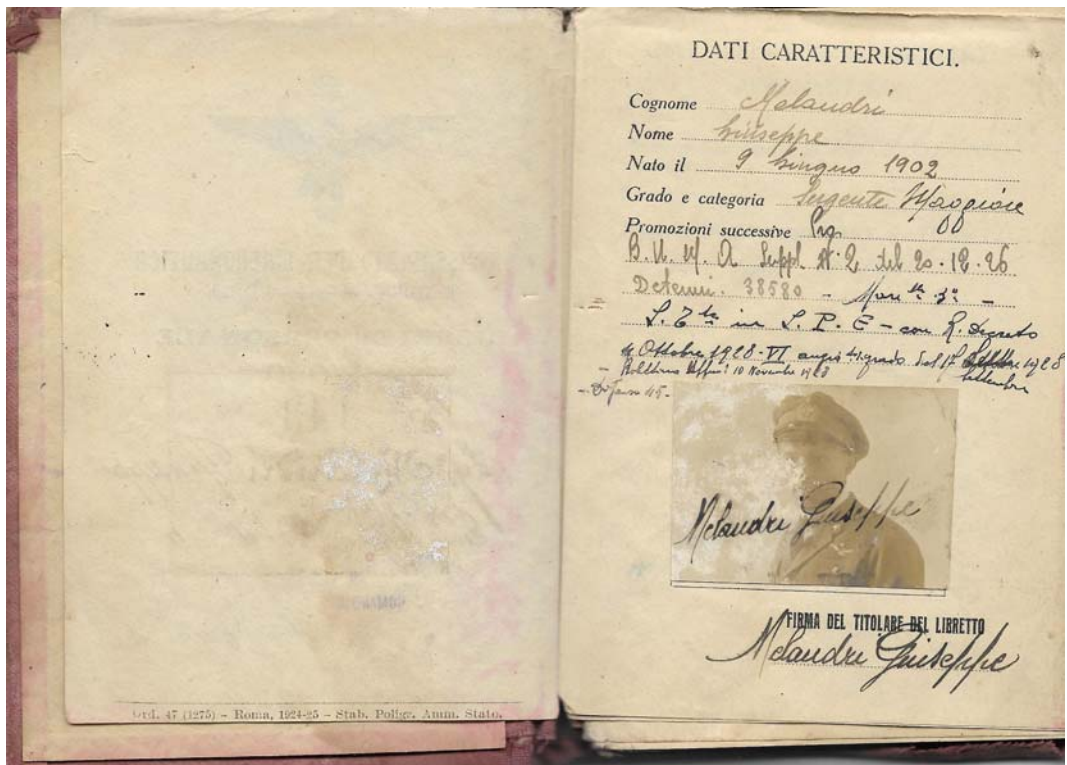 Ord. 47 (1275) - Roma, 1924-25 - Stab. Poligr. Amm. Stato.
DATI CARATTERISTICI.
Cognome Melandri
Nome Giuseppe
Nato il 9 Giugno 1902
Grado e categoria Sergente Maggiore
Promozioni successive
B. U. M. A Suppl. N. 2 del 20-12-26
Determi. 38580 - Mar.llo 3°
S. T.te in S. P. E - con R. Decreto
Ottobre 1928-VI 1928
Novembre settembre
Melandri Giuseppe
FIRMA DEL TITOLARE DEL LIBRETTO
Melandri Giuseppe